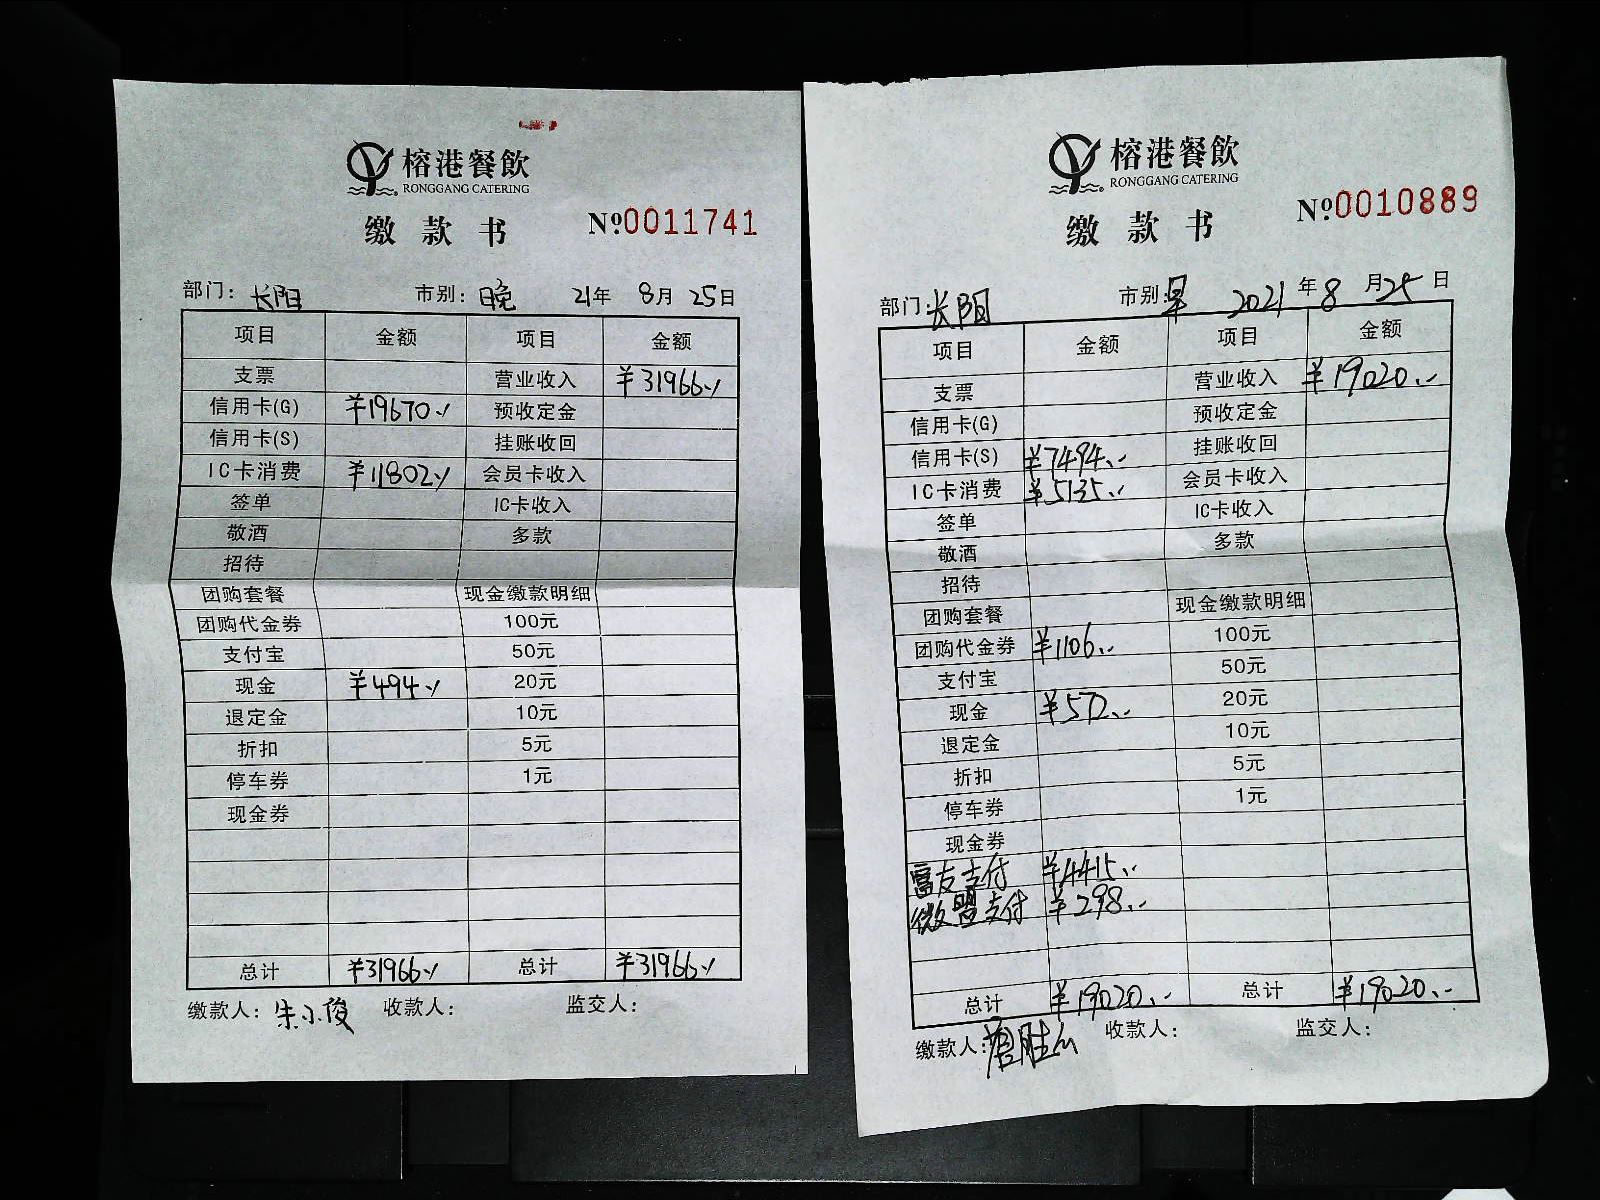 榕港餐飲
RONGGANG CATERING
缴款书 №0011741
部门：长阳 市别：晚 21年 8月 25日
项目 金额 项目 金额
支票 营业收入 ¥31966
信用卡(G) ¥19670 预收定金
信用卡(S) 挂账收回
IC卡消费 ¥11802 会员卡收入
签单 IC卡收入
敬酒 多款
招待
团购套餐 现金缴款明细
团购代金券 100元
支付宝 50元
现金 ¥494 20元
退定金 10元
折扣 5元
停车券 1元
现金券
总计 ¥31966 总计 ¥31966
缴款人：朱小俊 收款人： 监交人：
榕港餐飲
RONGGANG CATERING
缴款书 №0010889
部门：长阳 市别：早 2021年 8月 25日
项目 金额 项目 金额
支票 营业收入 ¥19020
信用卡(G) 预收定金
信用卡(S) ¥7494 挂账收回
IC卡消费 ¥5135 会员卡收入
签单 IC卡收入
敬酒 多款
招待
团购套餐 现金缴款明细
团购代金券 ¥1106 100元
支付宝 50元
现金 ¥572 20元
退定金 10元
折扣 5元
停车券 1元
现金券
富友支付 ¥4415
微盟支付 ¥298
总计 ¥19020 总计 ¥19020
缴款人： 收款人： 监交人：